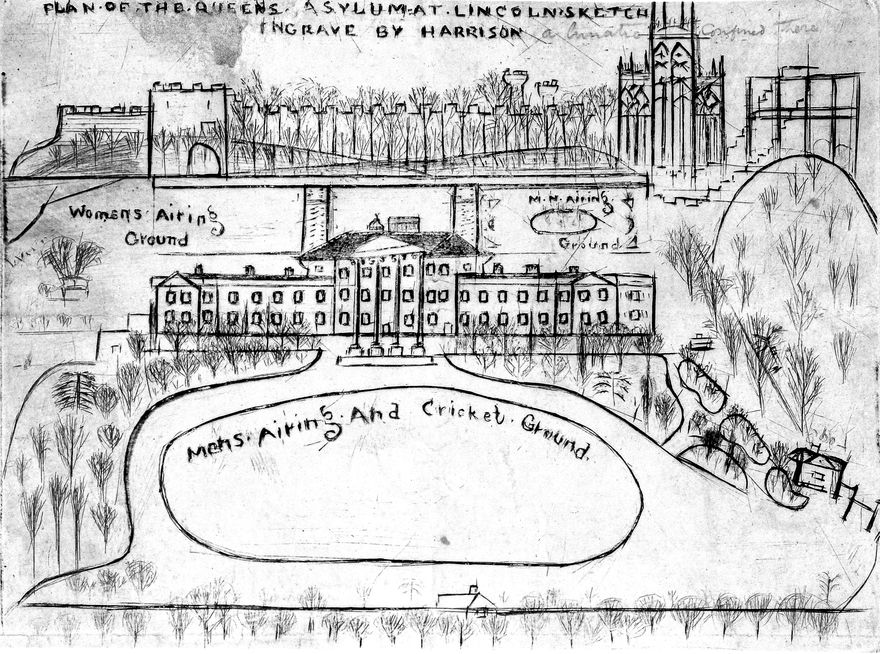 PLAN·OF·THE·QUEENS·ASYLUM·AT·LINCOLN·SKETCH
INGRAVE BY HARRISON a Lunatic Confined There
Womens·Airing
Ground
M·N·Airing
Ground
Mens·Airing·And Cricket·Ground.